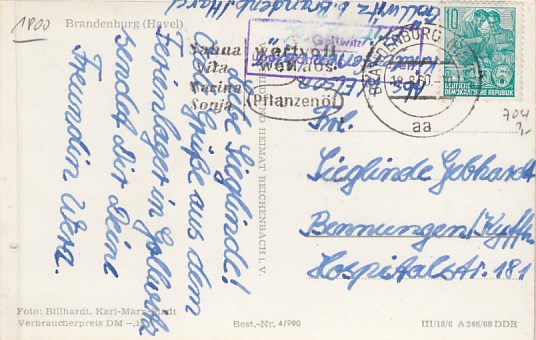 1800
Brandenburg (Havel)
Liebe Sieglinde!
Viele Grüße aus dem
Ferienlager in Gollwitz
sendet Dir Deine
Freundin Vera.
Gollwitz b. Brandenburg/Havel
Gollwitz
Sauna
Vita
Marina
Sonja
wertvoll
(Pflanzenöl)
BRANDENBURG (HAVEL)
60
aa
10
DEUTSCHE
DEMOKRATISCHE REPUBLIK
704
Frl.
Sieglinde Gebhardt
Bennungen/Kyffh.
Hospitalstr. 181
UND HEIMAT REICHENBACH i. V.
Foto: Billhardt, Karl-Marx-Stadt
Verbraucherpreis DM
Best.-Nr. 4/990
III/18/6 A 246/60 DDR